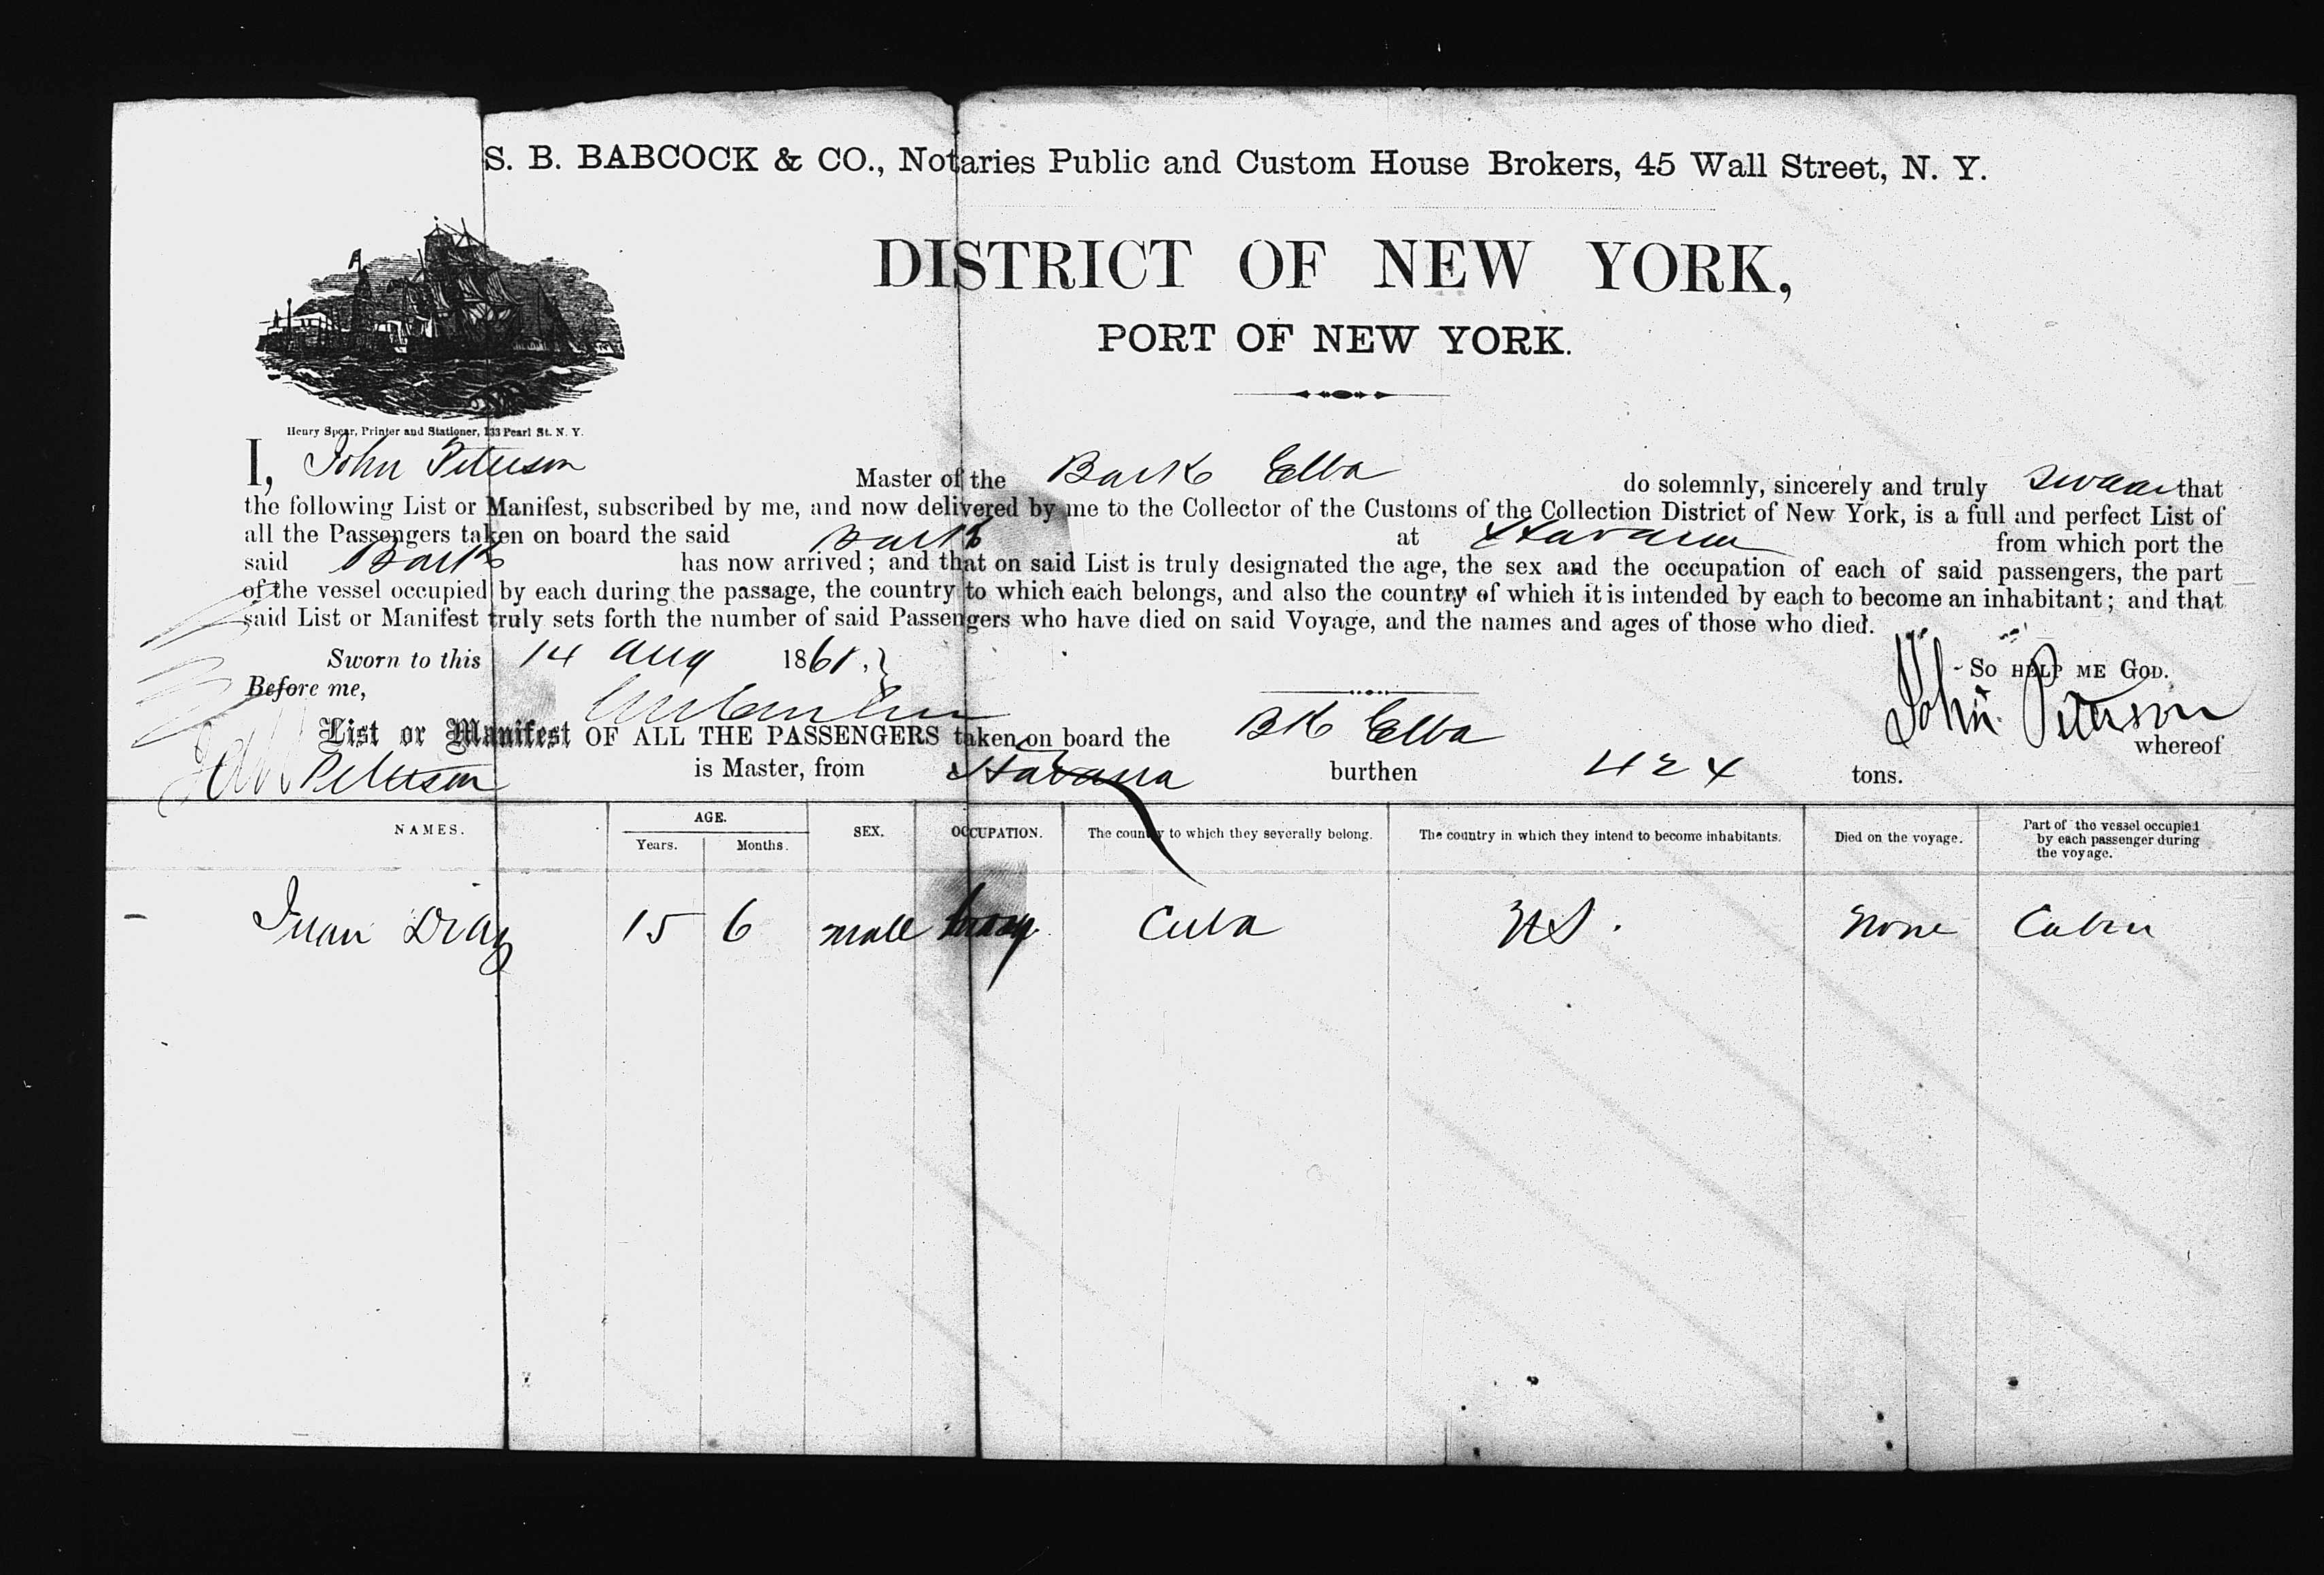 S. B. BABCOCK & CO., Notaries Public and Custom House Brokers, 45 Wall Street, N. Y.
DISTRICT OF NEW YORK,
PORT OF NEW YORK.
Henry Spear, Printer and Stationer, 133 Pearl St. N. Y.
I, John Peterson Master of the Bark Elba do solemnly, sincerely and truly swear that
the following List or Manifest, subscribed by me, and now delivered by me to the Collector of the Customs of the Collection District of New York, is a full and perfect List of
all the Passengers taken on board the said Bark at Havana from which port the
said Bark has now arrived; and that on said List is truly designated the age, the sex and the occupation of each of said passengers, the part
of the vessel occupied by each during the passage, the country to which each belongs, and also the country of which it is intended by each to become an inhabitant; and that
said List or Manifest truly sets forth the number of said Passengers who have died on said Voyage, and the names and ages of those who died.
Sworn to this 14 Aug 1861. So help me God.
Before me,
John Peterson
List or Manifest OF ALL THE PASSENGERS taken on board the Bk Elba whereof
John Peterson is Master, from Havana burthen 424 tons.
NAMES. AGE. Years. Months. SEX. OCCUPATION. The country to which they severally belong. The country in which they intend to become inhabitants. Died on the voyage. Part of the vessel occupied by each passenger during the voyage.
Juan Diaz 15 6 male Cuba US. None Cabin